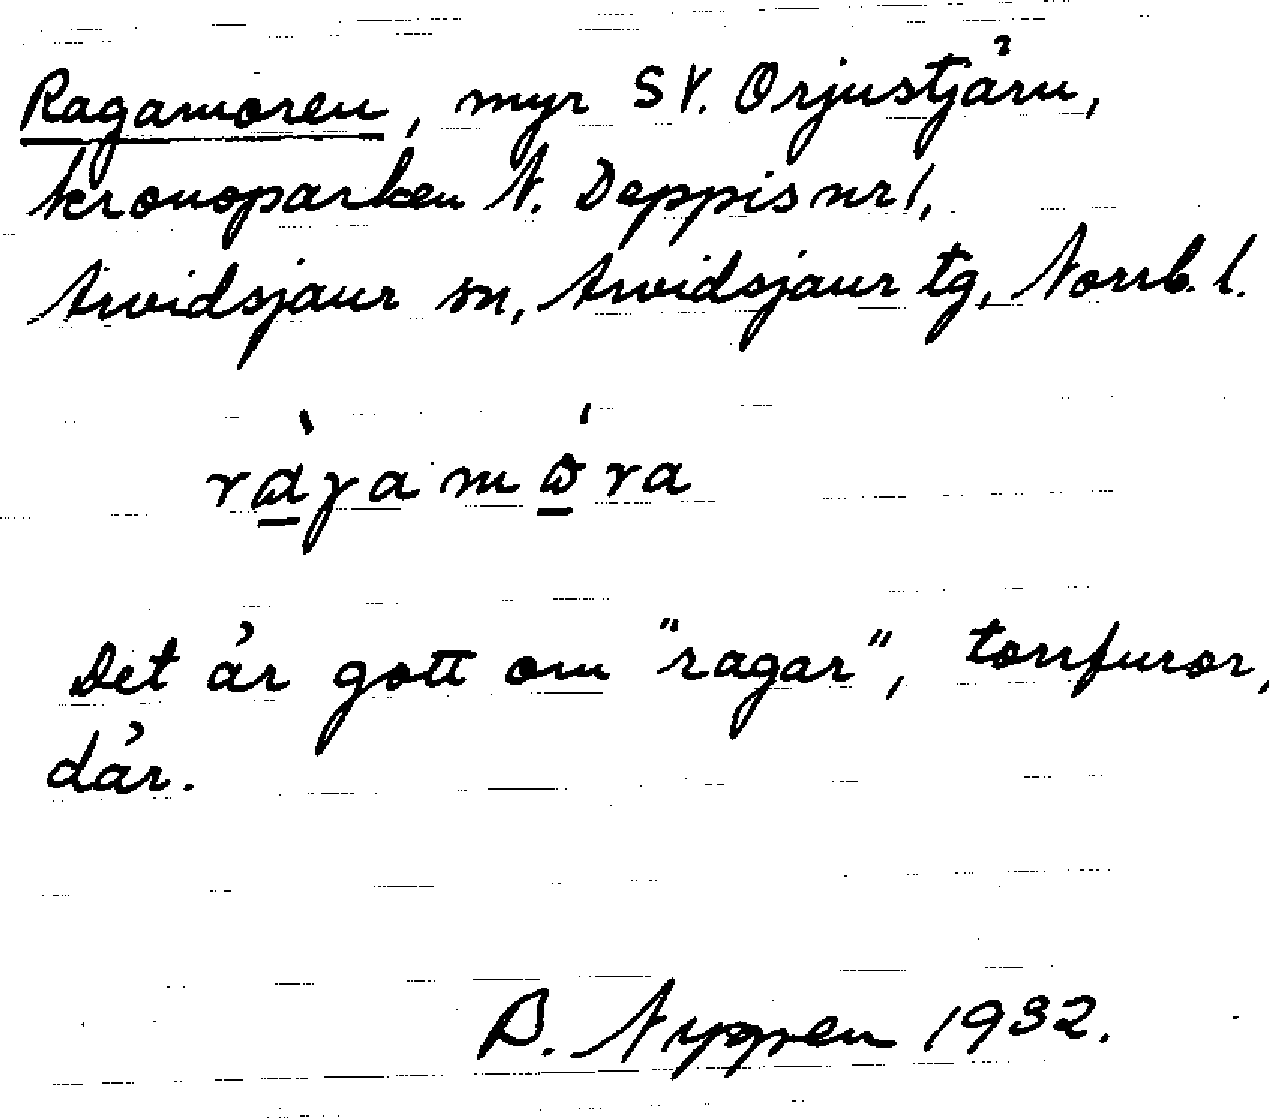 Ragamoren, myr SV. Orjustjärn,
kronoparken N. Deppis nr 1,
Arvidsjaur sn, Arvidsjaur tg, Norrb. l.
ràγamώ̲ra
Det är gott om "ragar", torrfuror,
där.
B. Nygren 1932.